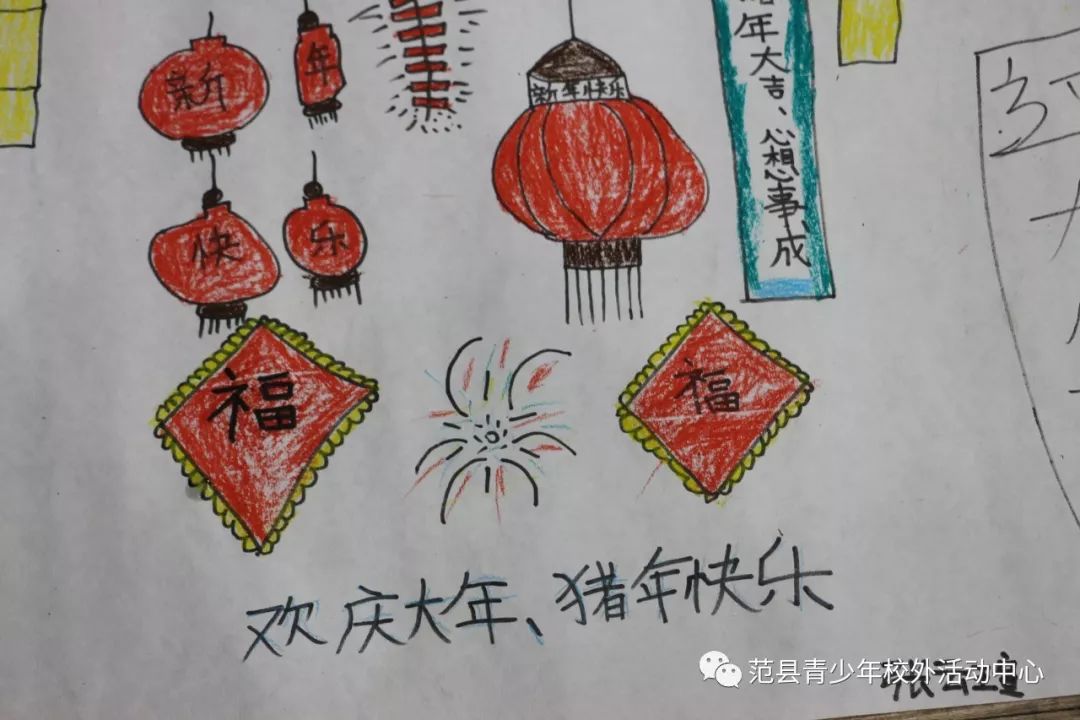 新
年
快
乐
新年快乐
年大吉、心想事成
福
福
欢庆大年、猪年快乐
范县青少年校外活动中心